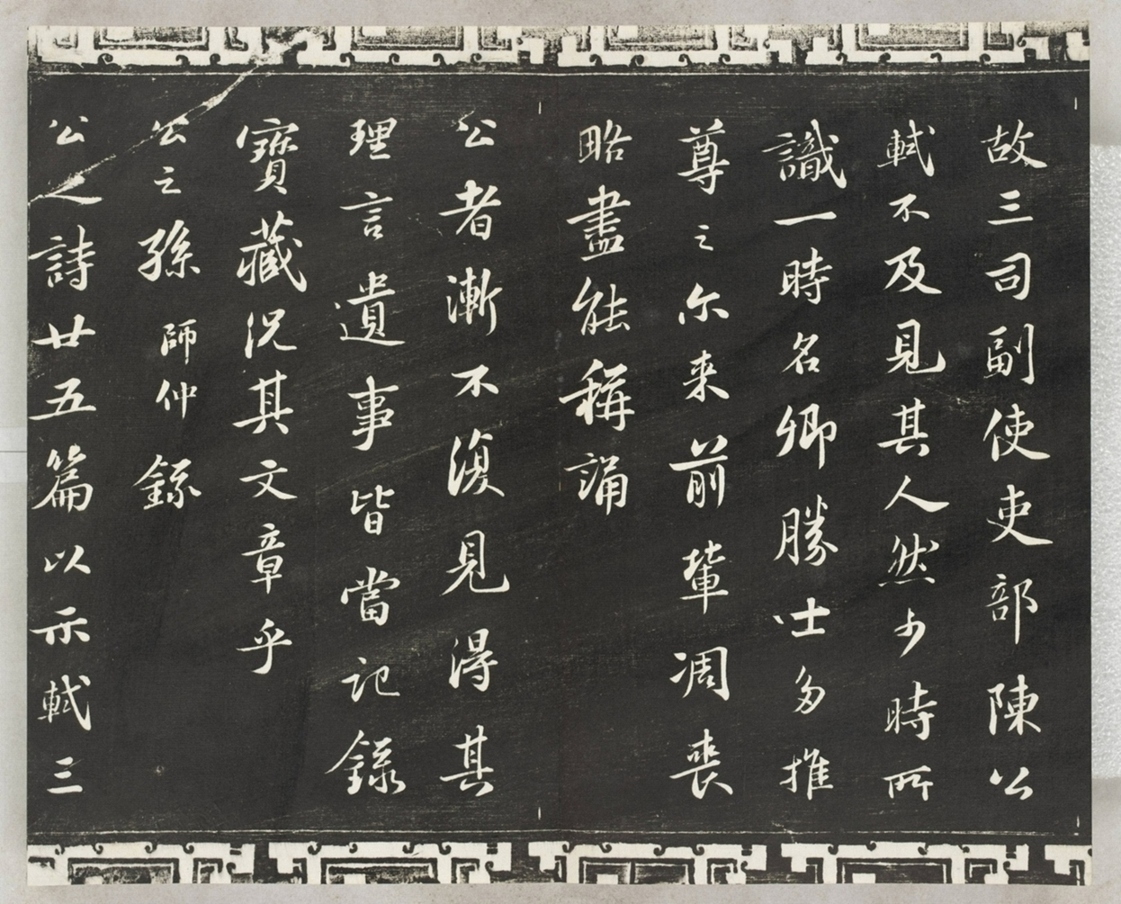 故三司副使吏部陳公
軾不及見其人然少時所
識一時名卿勝士多推
尊之尒来前輩凋喪
略盡能稱誦
公者漸不復見得其
理言遺事皆當記録
寶藏況其文章乎
公之孫師仲録
公之詩廿五篇以示軾三